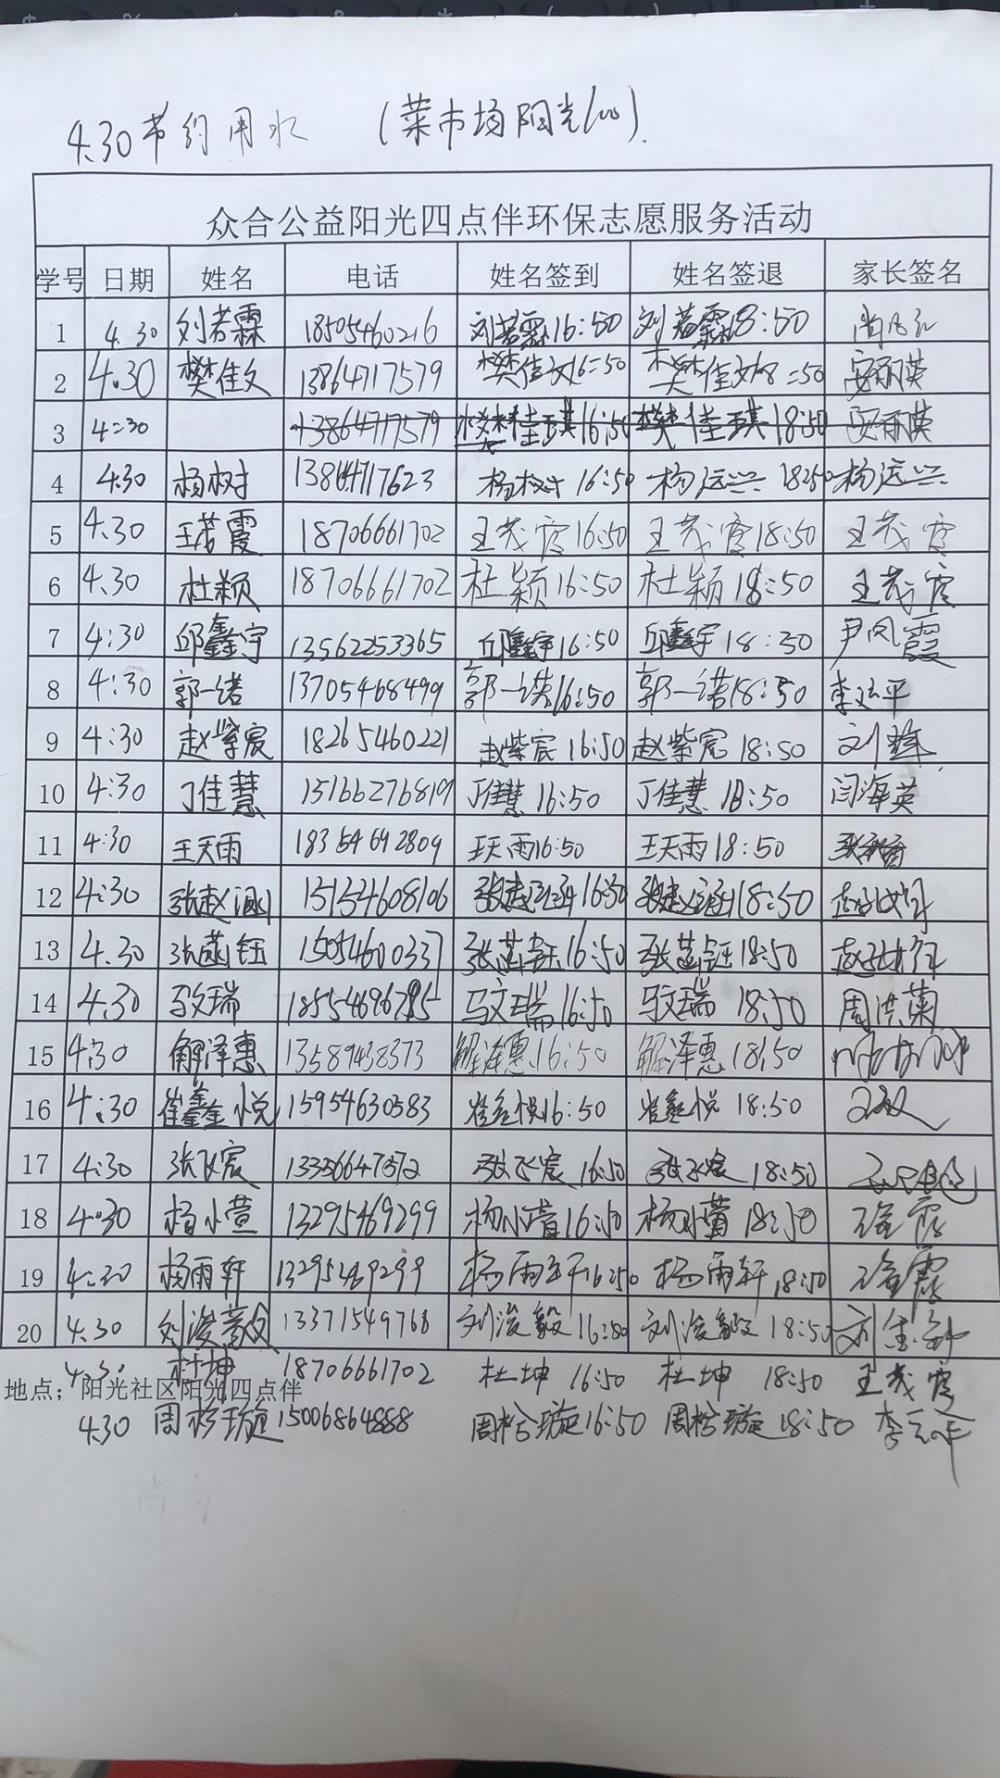 4.30节约用水 (菜市场阳光100).
众合公益阳光四点伴环保志愿服务活动
学号 日期 姓名 电话 姓名签到 姓名签退 家长签名
1 4.30 刘若霖 18505460216 刘若霖16:50 刘若霖18:50
2 4.30 樊佳文 13864717579 樊佳文16:50 樊佳文18:50 安丽英
3 4:30 13864717579 樊佳琪16:50 樊佳琪18:50 安丽英
4 4.30 杨树 13864717623 杨树 16:50 杨运兴 18:50 杨运兴
5 4.30 王若霞 18706661702 王茂霞16:50 王茂霞18:50 王茂霞
6 4.30 杜颖 18706661702 杜颖16:50 杜颖18:50 王茂霞
7 4:30 邱鑫宇 13562253365 邱鑫宇16:50 邱鑫宇 18:50 尹凤霞
8 4:30 郭一诺 13705468499 郭一诺16:50 郭一诺18:50
9 4:30 赵紫宸 18265460221 赵紫宸 16:50 赵紫宸 18:50
10 4:30 丁佳慧 15166276819 丁佳慧16:50 丁佳慧 18:50 闫海英
11 4:30 王天雨 18354692809 王天雨16:50 王天雨18:50
12 4:30 张赵涵 15154608106 张赵涵16:50 张赵涵18:50
13 4.30 张菡钰 15054600337 张菡钰16:50 张菡钰18:50
14 4.30 马文瑞 马文瑞16:50 马文瑞 18:50 周洪菊
15 4:30 解泽惠 13589438373 解泽惠16:50 解泽惠18:50
16 4:30 崔鑫悦 15954630583 崔鑫悦16:50 崔鑫悦 18:50
17 4:30 张飞宸 张飞宸 16:50 张飞宸 18:50
18 4:30 杨小萱 13295469299 杨小萱16:50 杨小萱18:50
19 4:30 杨雨轩 13295469299 杨雨轩16:50 杨雨轩 18:50
20 4.30 刘浚毅 13371549768 刘浚毅16:50 刘浚毅 18:50
4.30 杜坤 18706661702 杜坤 16:50 杜坤 18:50 王茂霞
地点：阳光社区阳光四点伴
4.30 周杉璇 15006864888 周杉璇16:50 周杉璇18:50